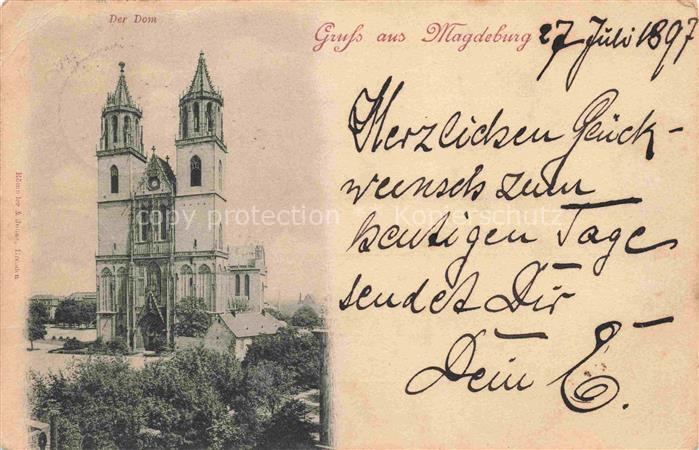 Der Dom
Gruß aus Magdeburg
27 Juli 1897
Herzlichen Glück-
wunsch zum
heutigen Tage
sendet Dir
Dein E.
copy protection & Kopierschutz